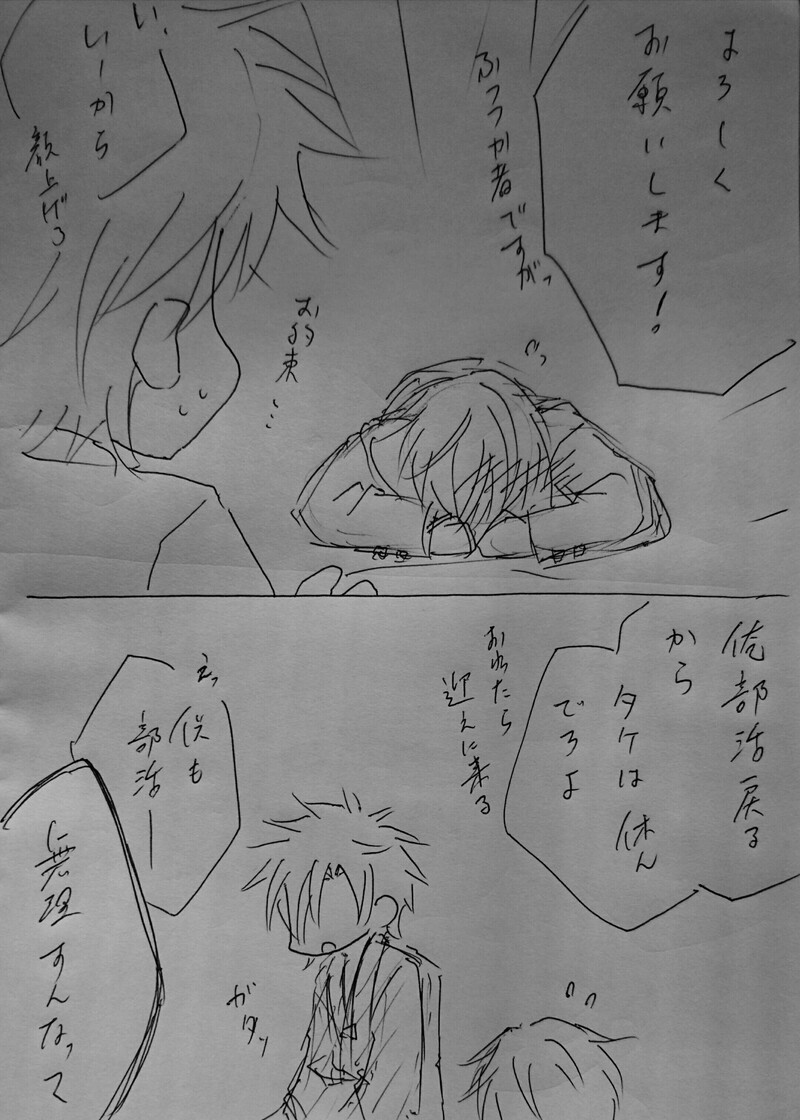 よろしく
お願いします!
ふつつか者ですがっ
お約束…
い、
いーから
顔上げろ
俺部活戻る
から
タケは休ん
でろよ
おわったら
迎えに来る
えっ
俺も
部活ー
ガタッ
無理すんなって